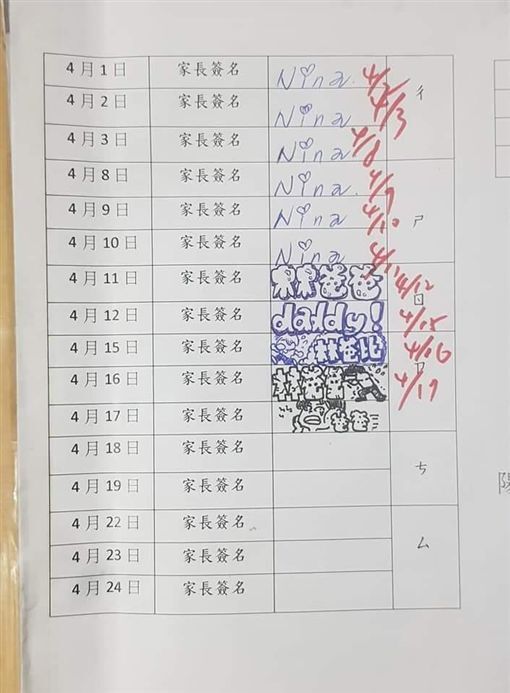 4月1日 家長簽名 Nina. 4/2
4月2日 家長簽名 Nina 4/3 ㄔ
4月3日 家長簽名 Nina 4/8
4月8日 家長簽名 Nina. 4/9
4月9日 家長簽名 Nina 4/10 ㄕ
4月10日 家長簽名 Nina 4/11
4月11日 家長簽名 林爸爸 4/12 ㄖ
4月12日 家長簽名 daddy! 4/15
4月15日 家長簽名 林爸比 4/16 ㄗ
4月16日 家長簽名 林爸爸 4/17
4月17日 家長簽名 爸爸
4月18日 家長簽名
4月19日 家長簽名 ㄘ
4月22日 家長簽名
4月23日 家長簽名 ㄙ
4月24日 家長簽名